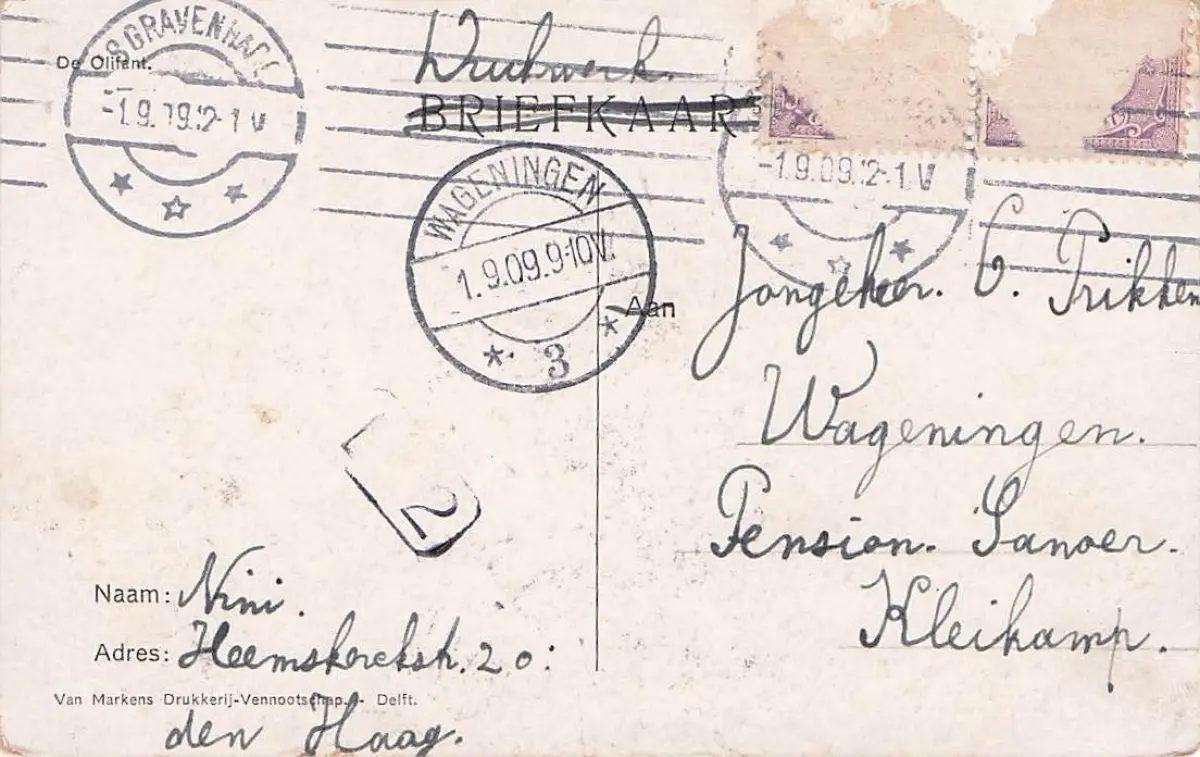 'SGRAVENHAGE
-1.9.09.12-1V
De Olifant.
Drukwerk.
BRIEFKAART
WAGENINGEN
1.9.09.9-10V.
3
-1.9.09.12-1V
Aan
Jongeheer. C. Prikken
Wageningen.
Pension. Sanoer.
Kleikamp.
2
Naam: Nini.
Adres: Heemskerckstr. 20:
Van Markens Drukkerij-Vennootschap. - Delft.
den Haag.